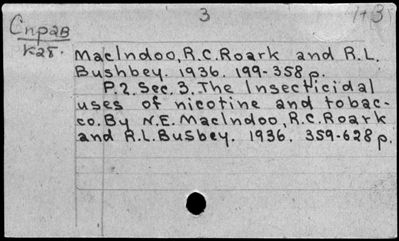 3
1+3
Cnp2B
K25.
MacIndoo, R.C. Roark and R.L.
Bushbey. 1936. 199-358 p.
P.2. Sec. 3. The Insecticidal
uses of nicotine and tobac-
co. By N.E. MacIndoo, R.C. Roark
and R.L. Busbey. 1936. 359-628 p.